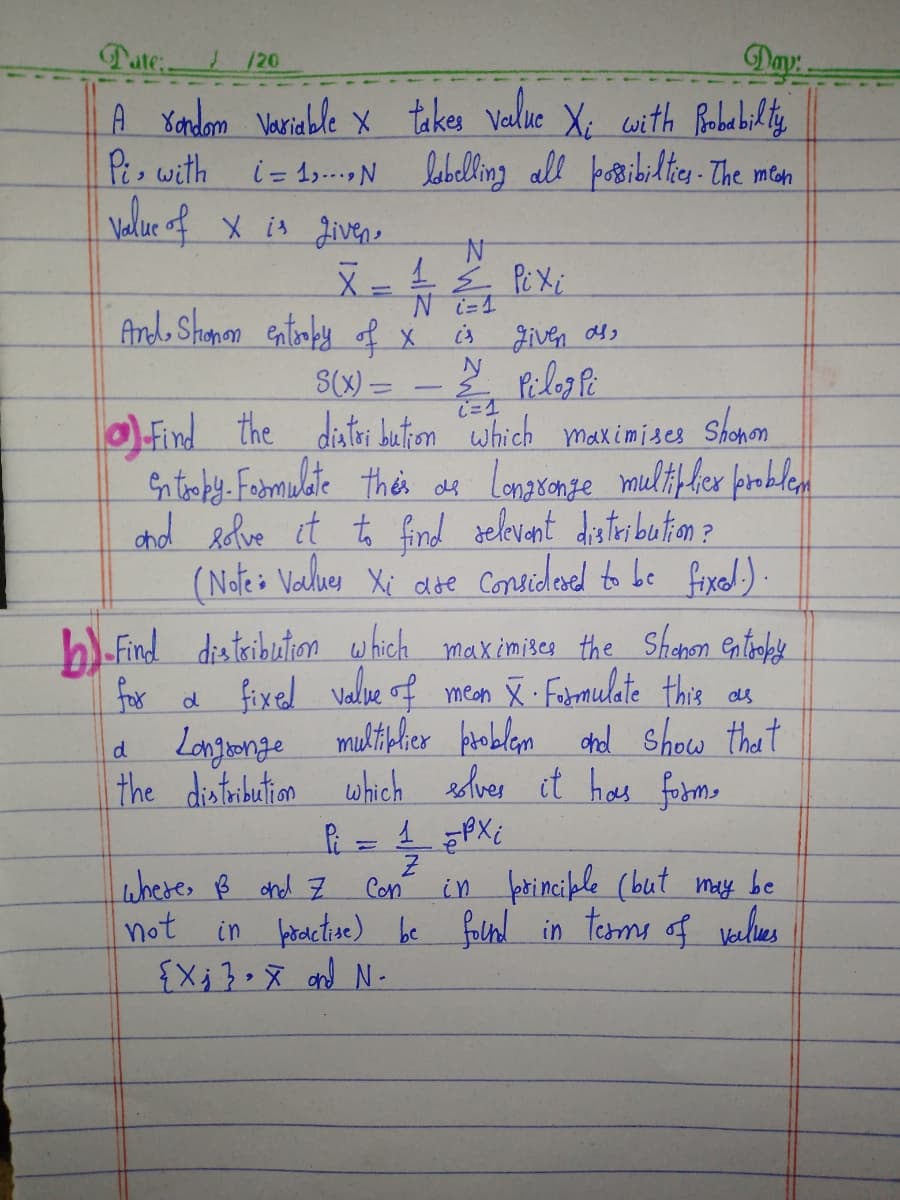 Date: / /20 Day:
A random Variable X takes value Xi with Probabilty
Pi, with i = 1,...,N labelling all possibilties. The mean
Value of X is given,
X̄ = 1/N N Σ i=1 PiXi
And, Shanon entropy of X is given as,
S(X) = - N Σ i=1 Pi log Pi
a). Find the distri bution which maximises Shanon
Entropy. Formulate this as Langrange multiplier problem
and solve it to find relevant distribution?
(Note: Values Xi are Considered to be fixed.).
b). Find distribution which maximises the Shanon entropy
for a fixed value of mean X̄. Formulate this as
a Langrange multiplier problem and show that
the distribution which solves it has form,
Pi = 1/Z e^-βXi
where, β and Z Can in principle (but may be
not in practise) be found in terms of values
{Xj}, X̄ and N.